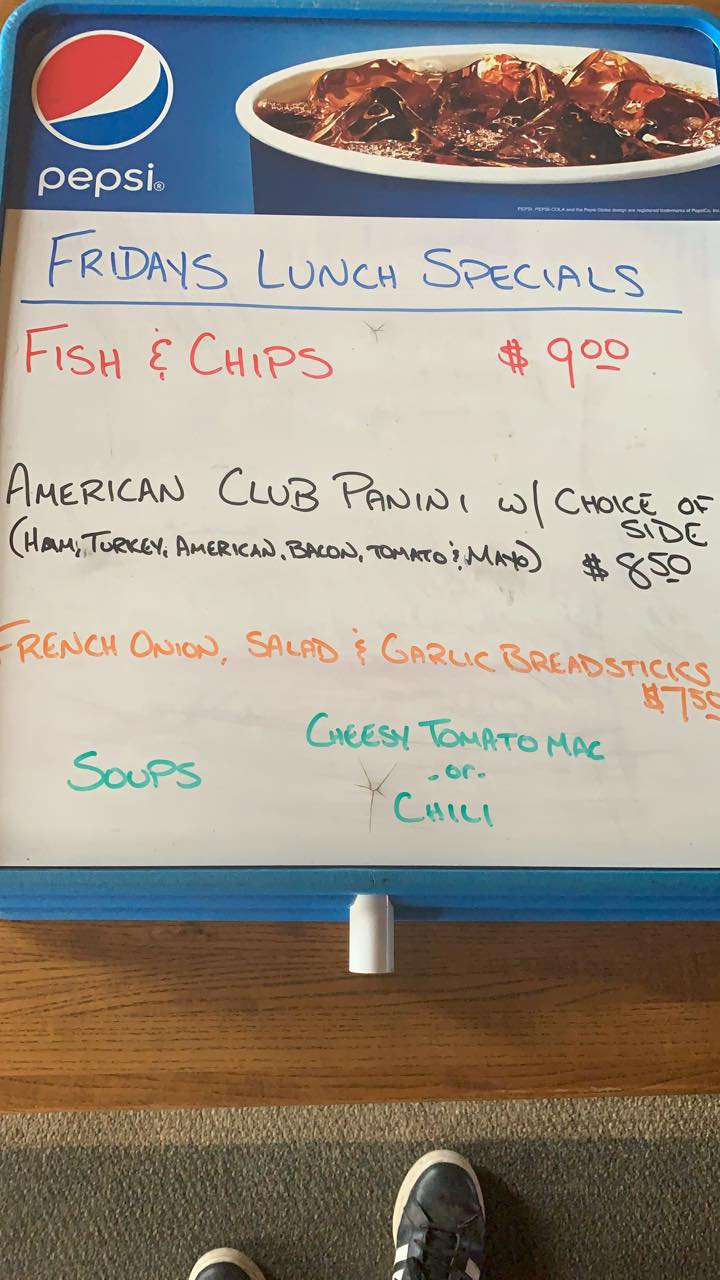 pepsi®
PEPSI, PEPSI-COLA and the Pepsi Globe design are registered trademarks of PepsiCo, Inc
FRIDAYS LUNCH SPECIALS
FISH & CHIPS $ 9.00
AMERICAN CLUB PANINI W/ CHOICE OF
SIDE
(HAM, TURKEY, AMERICAN, BACON, TOMATO & MAYO) $ 8.50
FRENCH ONION, SALAD & GARLIC BREADSTICKS
$7.50
CHEESY TOMATO MAC
SOUPS - or -
CHILI